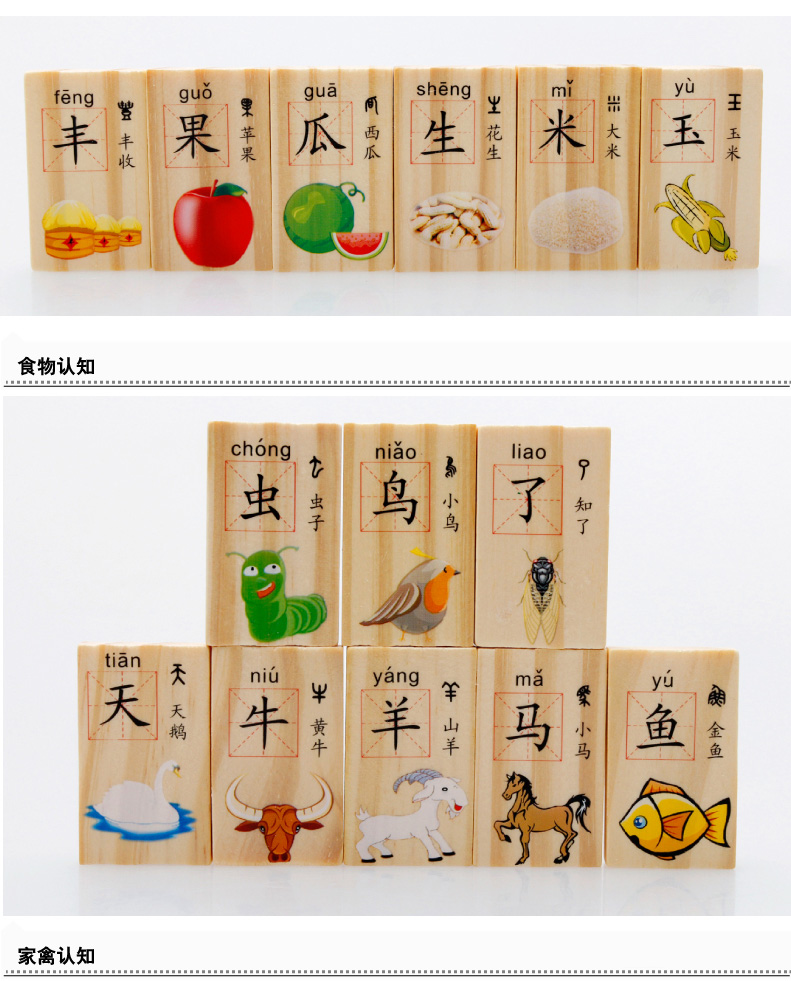 fēng
丰
丰收
guǒ
果
苹果
guā
瓜
西瓜
shēng
生
花生
mǐ
米
大米
yù
玉
玉米
食物认知
chóng
虫
虫子
niǎo
鸟
小鸟
liao
了
知了
tiān
天
天鹅
niú
牛
黄牛
yáng
羊
山羊
mǎ
马
小马
yú
鱼
金鱼
家禽认知